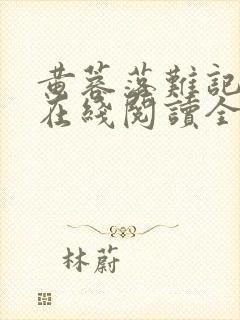 黄蓉落難記
在綫閲讀全
林蔚